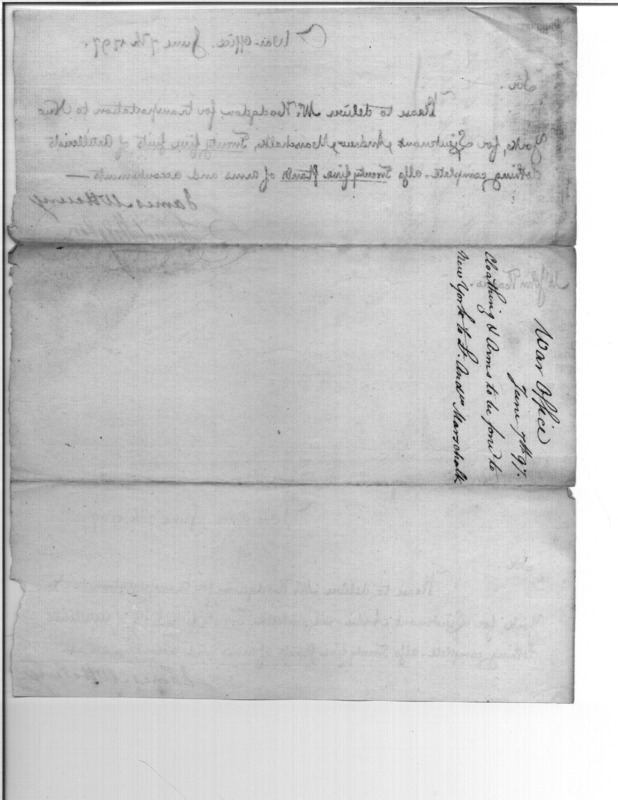 War-Office June 7th 1797.
Sir.
Please to deliver Mr. Hodgdon for transportation to New
York, for Lieutenant Andrew Marschalk, Twenty five suits of Artillerists
clothing complete. also Twenty five stands of arms and accoutrements—
James McHenry
Mr. John
War Office
June 7th 97.
Cloathing & Arms to be forwd to
New York to Lt. Andw Marschalk